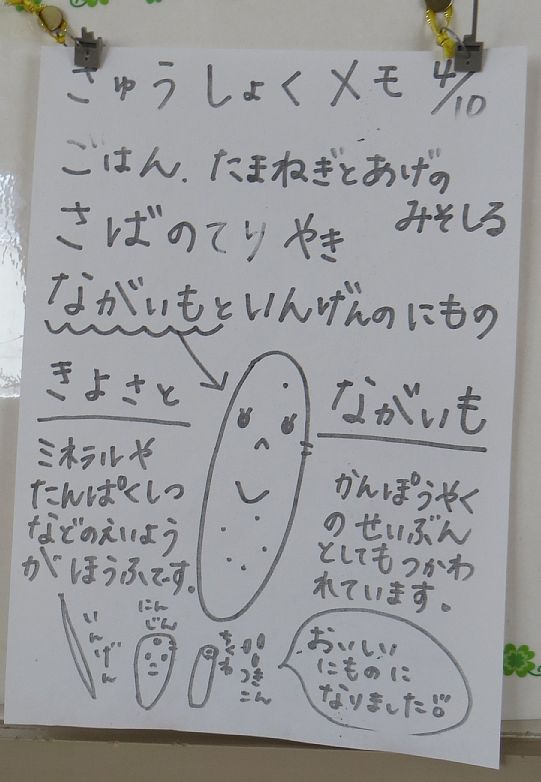 きゅうしょくメモ 4/10
ごはん.たまねぎとあげの
みそしる
さばのてりやき
ながいもといんげんのにもの
きよさと
ながいも
ミネラルや
たんぱくしつ
などのえいよう
がほうふです。
かんぽうやく
のせいぶん
としてもつかわ
れています。
いんげん
にん
じん
ちくわ
つきこん
おいしい
にものに
なりました